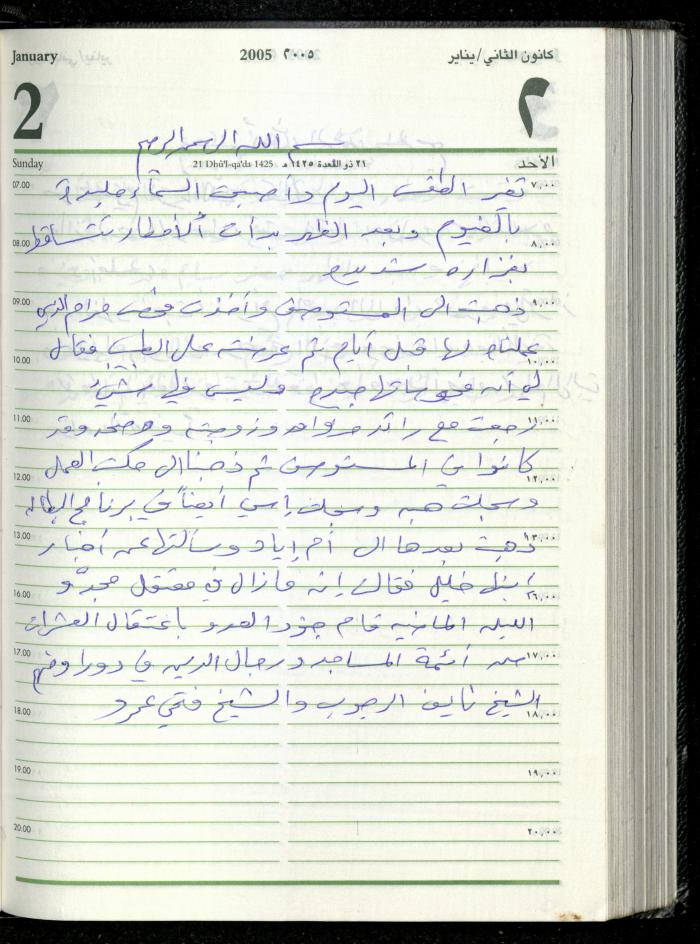 January 2005 ٢٠٠٥ كانون الثاني/يناير
2 ٢
بسم الله الرحمن الرحيم
Sunday 21 Dhû'l-qa'da 1425 ٢١ ذو القعدة ١٤٢٥ هـ الأحد
07.00 تغير الطقس اليوم وأصبحت السماء ملبدة ٧,٠٠
بالغيوم وبعد الظهر بدأت الأمطار تتساقط
08.00 ٨,٠٠
بغزاره شديده
09.00 ذهبت الى المستوصف وأخذت فحص الذي ٩,٠٠
عملناه لها قبل أيام ثم عرضته على الطبيب فقال
10.00 ١٠,٠٠
لي أنه فحوصاتها جيده وليس فيها شيء
11.00 رجعت مع رائد وزوجته وقد ١١,٠٠
كانوا في المستوصف ثم ذهبنا الى مكتب العمل
12.00 ١٢,٠٠
وسجلت هبه وسجلت إسمي أيضاً في برنامج البطاله
13.00 ذهبت بعدها الى أم إياد وسألتها عن أخبار ١٣,٠٠
ابنها خليل فقالت إنه مازال في معتقل مجدو
16.00 ١٦,٠٠
الليله الماضيه قام جنود العدو باعتقال العشرات
17.00 من أئمة المساجد ورجال الدين في دورا ومنهم ١٧,٠٠
الشيخ نايف الرجوب والشيخ فتحي عمرو
18.00 ١٨,٠٠
19.00 ١٩,٠٠
20.00 ٢٠,٠٠